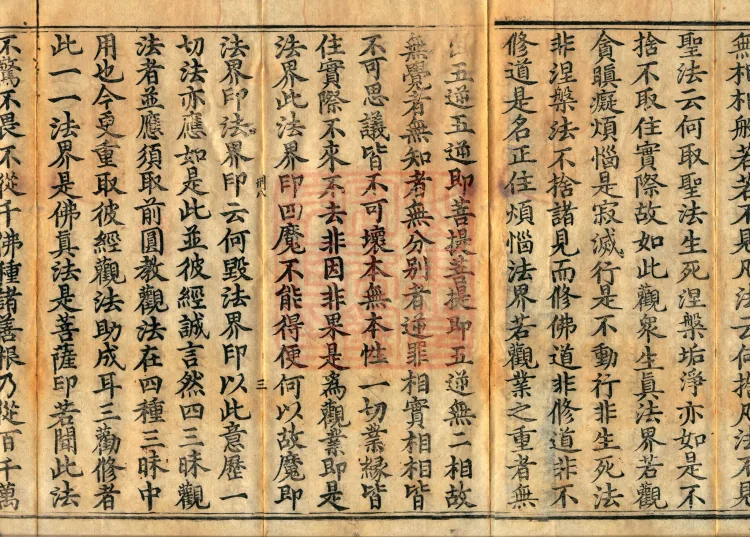 無相相般若若不見凡法云何捨凡法不見
聖法云何取聖法生死涅槃垢淨亦如是不
捨不取住實際故如此觀衆生眞法界若觀
貪瞋癡煩惱是寂滅行是不動行非生死法
非涅槃法不捨諸見而修佛道非修道非不
修道是名正住煩惱法界若觀業之重者無
出五逆五逆即菩提菩提即五逆無二相故
無覺者無知者無分別者逆罪相實相相皆
不可思議皆不可壞本無本性一切業緣皆
住實際不來不去非因非果是爲觀業即是
法界此法界印四魔不能得便何以故魔即
三
法界印法界印云何毀法界印以此意歷一
切法亦應如是此並彼經誠言然四三昧觀
法者並應須取前圓教觀法在四種三昧中
用也今更重取彼經觀法助成耳三勸修者
此一一法界是佛眞法是菩薩印若聞此法
不驚不畏不從千佛種諸善根乃從百千萬